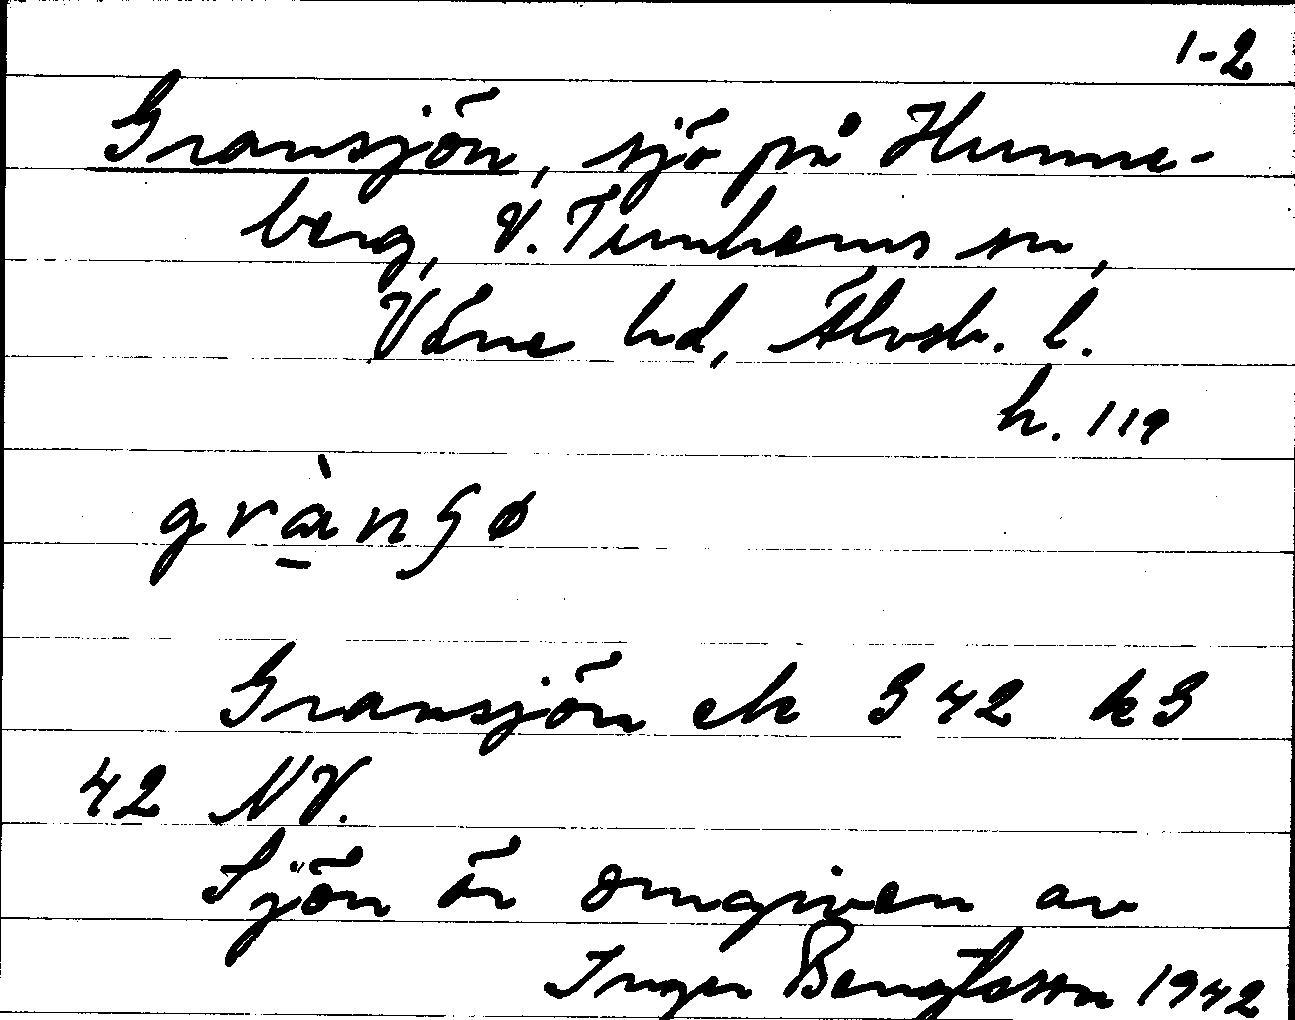 1-2
Gransjön, sjö på Hunne-
berg, V. Tunhems sn,
Väne hd, Älvsb. l.
h. 119
grànʃø
Gransjön ek G 42 kG
42 NV.
Sjön är omgiven av
Inger Bengtsson 1942